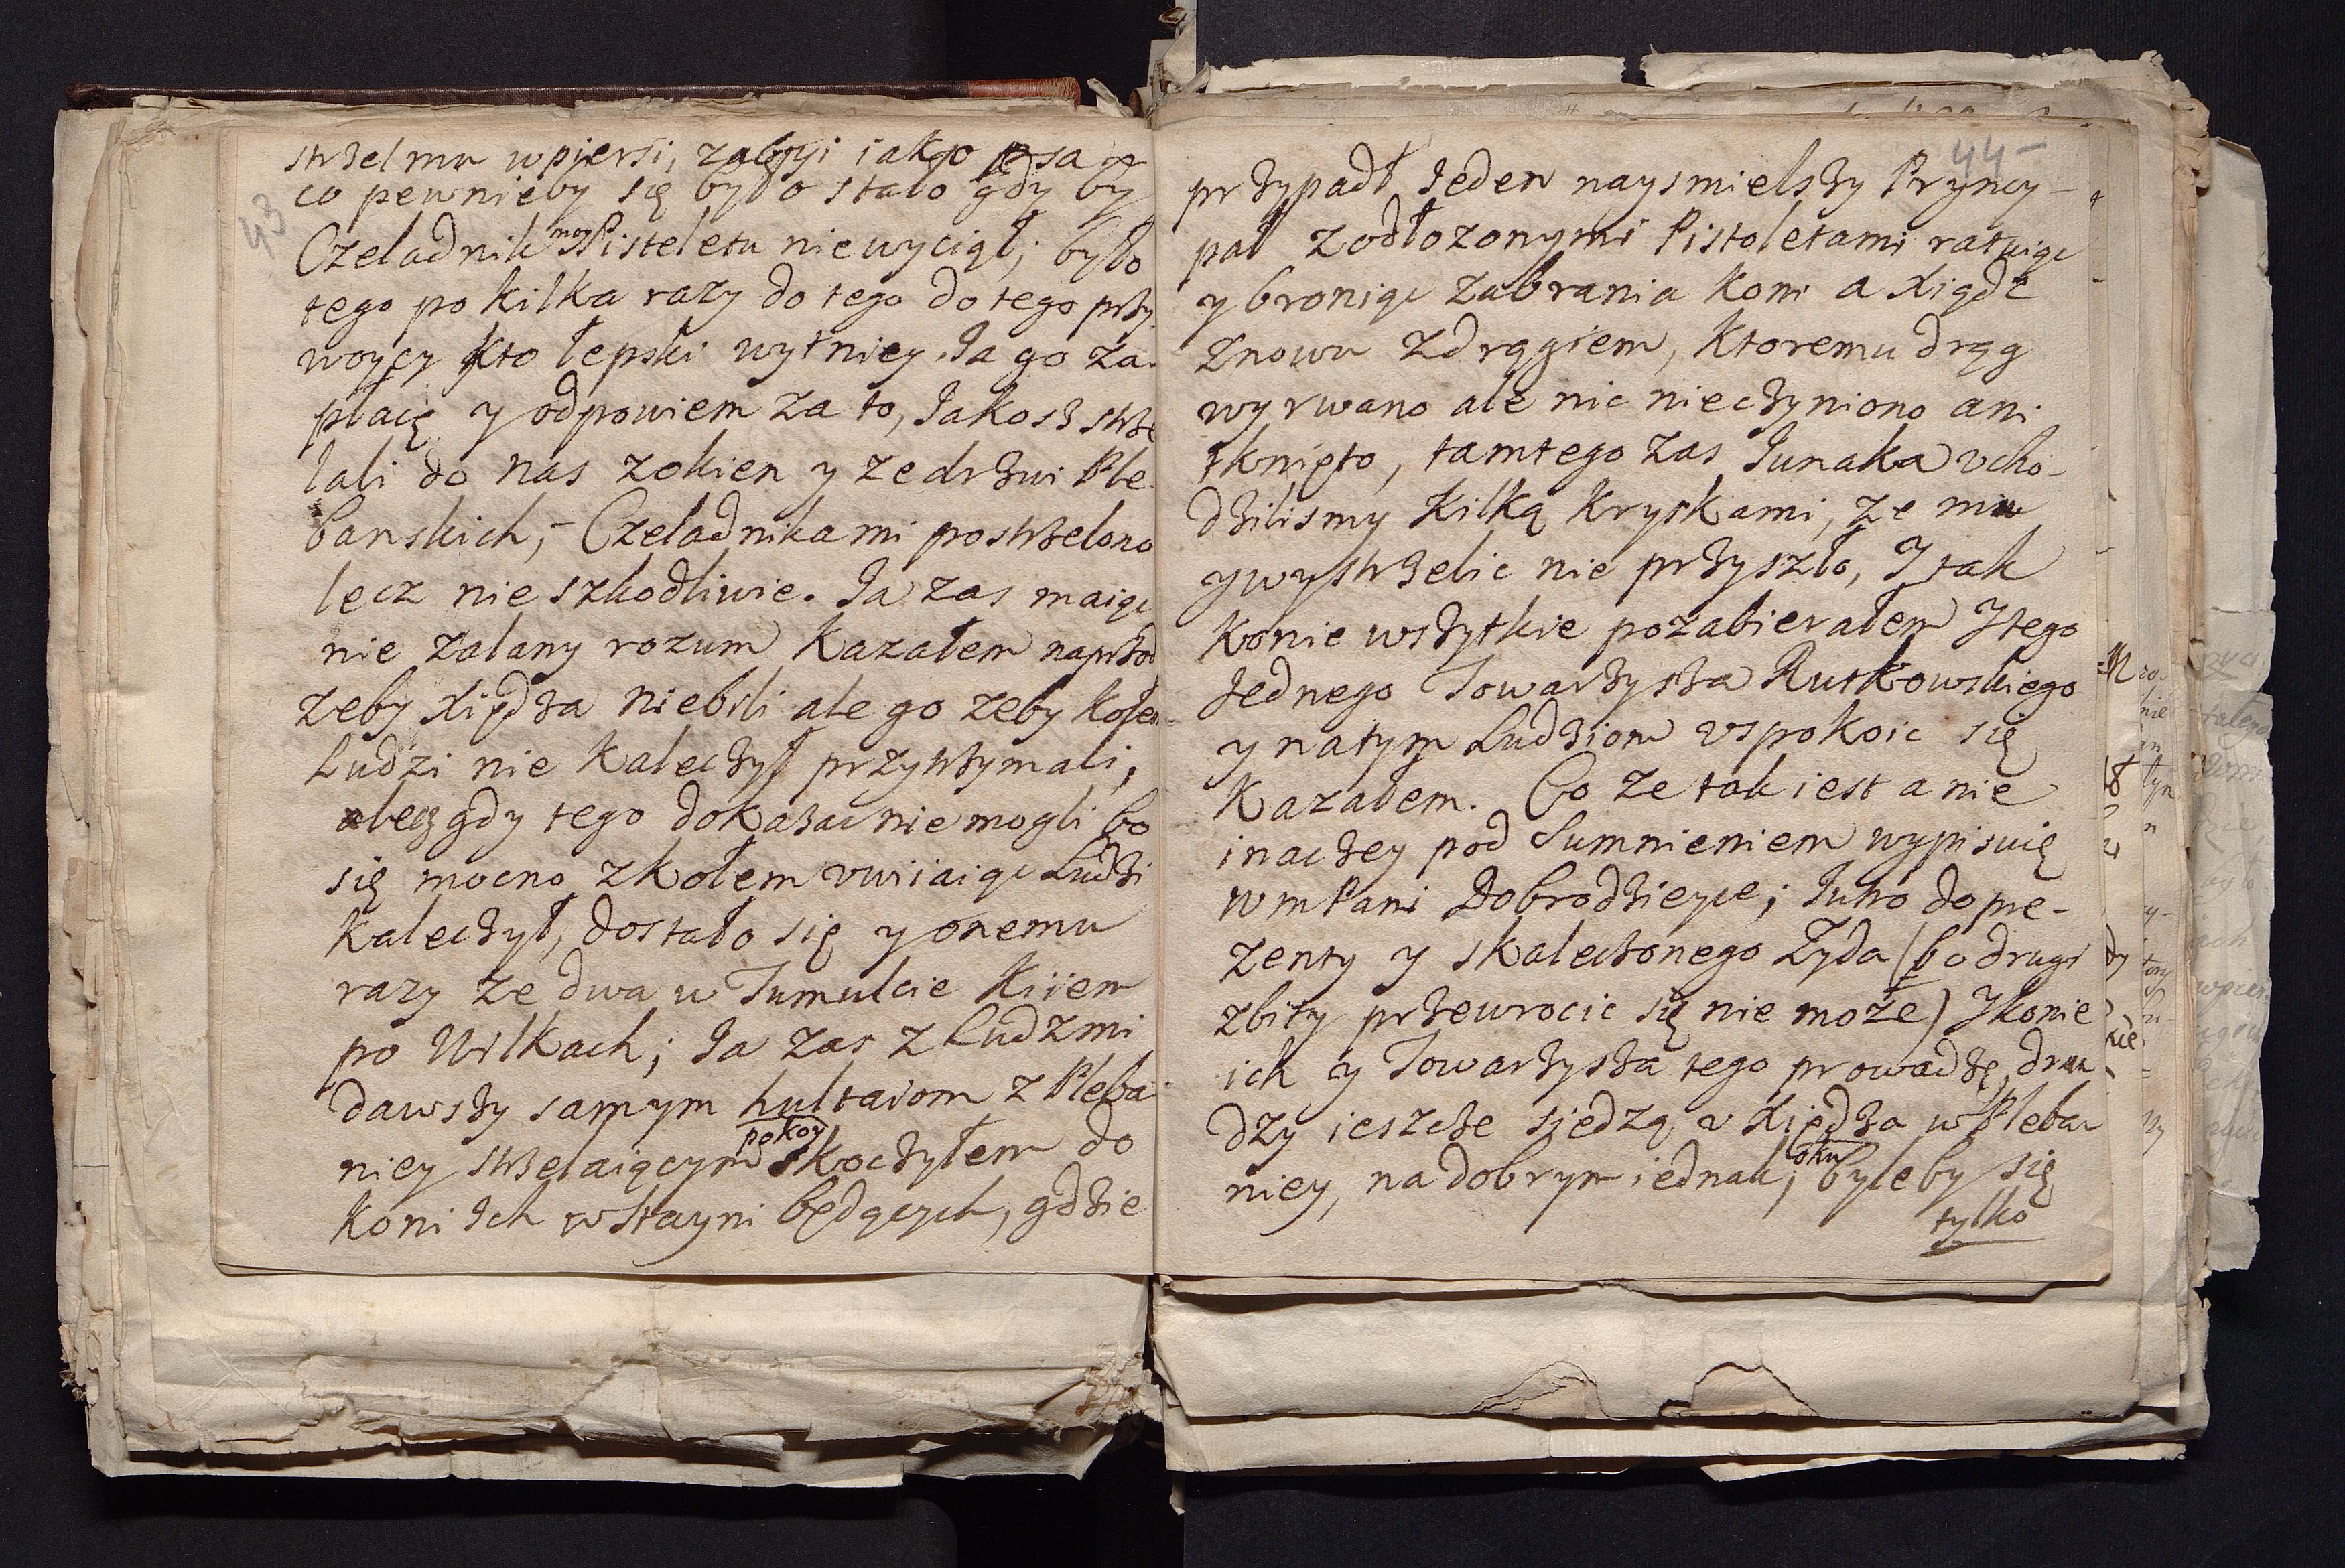 43
strzel mu wpiersi, zabiyi iako psa
co pewnieby się było stało gdy by
Czeladnik moy Pisteletu niewyciął; było
tego po kilka razy do tego do tego przy
woycy kto lepski wytniey. Ja go za-
płacę y odpowiem za to, Jakosz strze
lali do nas zokien y zedrzwi Ple-
banskich, - Czeladnika mi postrzelono
lecz nie szkodliwie. Ja zas maiąc
nie zalany rozum kazałem naprzod
zeby xiędza niebili ale go zeby kołem
Ludzi nie kaleczył przytrzymali,
lecz gdy tego dokazac nie mogli bo
się mocno zkołem uwiaiąc Ludzi
kaleczył, dostało się y onemu
razy ze dwa w Tumulcie kiiem
po Wilkach; Ja zas z Ludzmi
dawszy samym hultaiom z Pleba-
niey strzelaiącym pokoy skoczyłem do
koni Ich w stayni będących, gdzie
44-
przypadł Jeden naysmielszy Pryncy-
pał zodłozonymi Pistoletami ratuiąc
y broniąc zabrania koni a xiądz
znowu zdrągiem, ktoremu drąg
wyrwano ale nic nieczyniono ani
tknięto, tamtego zas Junaka ucho-
dzilismy kilką kryskami, ze mu
ywystrzelic nie przyszło, Y tak
konie wszytkie pozabierałem Y tego
Jednego Towarzysza Rutkowskiego
y natym Ludziom uspokoic się
kazałem. Co ze tak iest a nie
inaczey pod Sumnieniem wypisuię
WmPani Dobrodzieyce; Jutro do pre-
zenty y skaleczonego Zyda (bo drugi
zbity przewrocic się nie może) Y konie
ich y Towarzysza tego prowadzę, dru
dzy ieszcze siedzą u Xiędza w Pleba
niey, na dobrym iednak oku; byleby się
tylko